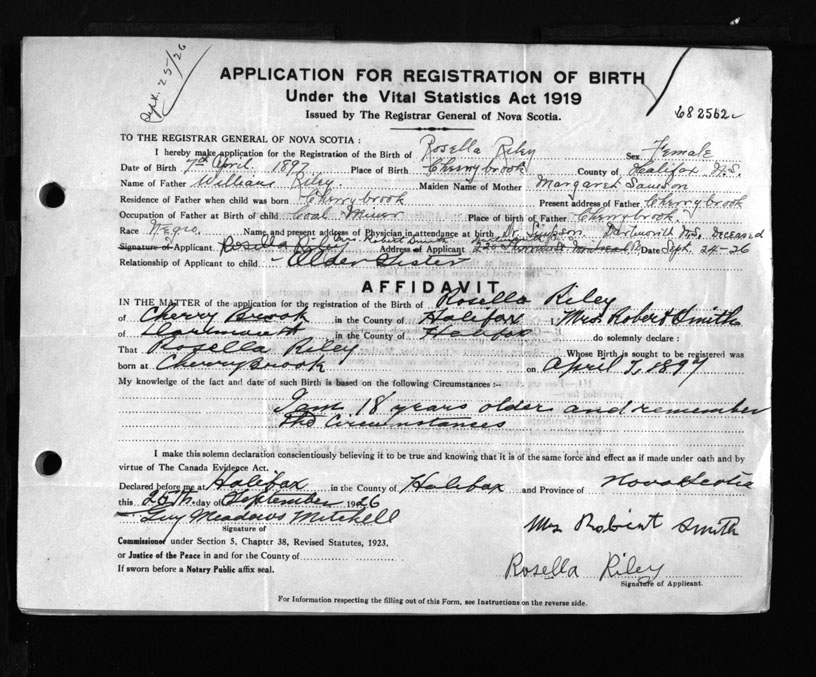 Sept. 25/26
APPLICATION FOR REGISTRATION OF BIRTH
Under the Vital Statistics Act 1919
Issued by The Registrar General of Nova Scotia.
682562
TO THE REGISTRAR GENERAL OF NOVA SCOTIA :
I hereby make application for the Registration of the Birth of Rosella Riley Sex Female
Date of Birth 7th April 1897 Place of Birth Cherrybrook County of Halifax N.S.
Name of Father William Riley. Maiden Name of Mother Margaret
Residence of Father when child was born Cherrybrook Present address of Father Cherrybrook
Occupation of Father at Birth of child Coal Miner Place of birth of Father Cherrybrook.
Race Negro. Name and present address of Physician in attendance at birth Dr. Simpson. Dartmouth N.S. Deceased
Signature of Applicant Rosella Riley Mrs. Robert Smith Address of Applicant Montreal Date Sept. 24-26
Relationship of Applicant to child - Older Sister
AFFIDAVIT
IN THE MATTER of the application for the registration of the Birth of Rosella Riley
of Cherry Brook in the County of Halifax , Mrs. Robert Smith
of Dartmouth in the County of Halifax do solemnly declare :
That Rosella Riley Whose Birth is sought to be registered was
born at Cherry Brook on April 7, 1897
My knowledge of the fact and date of such Birth is based on the following Circumstances :-
I am 18 years older and remember
the circumstances
I make this solemn declaration conscientiously believing it to be true and knowing that it is of the same force and effect as if made under oath and by
virtue of The Canada Evidence Act.
Declared before me at Halifax in the County of Halifax and Province of Nova Scotia
this 25th. day of September 1926
Guy Meadows Mitchell
Signature of
Mrs Robint Smith
Commissioner under Section 5, Chapter 38, Revised Statutes, 1923,
or Justice of the Peace in and for the County of
If sworn before a Notary Public affix seal.
Rosella Riley
Signature of Applicant.
For Information respecting the filling out of this Form, see Instructions on the reverse side.